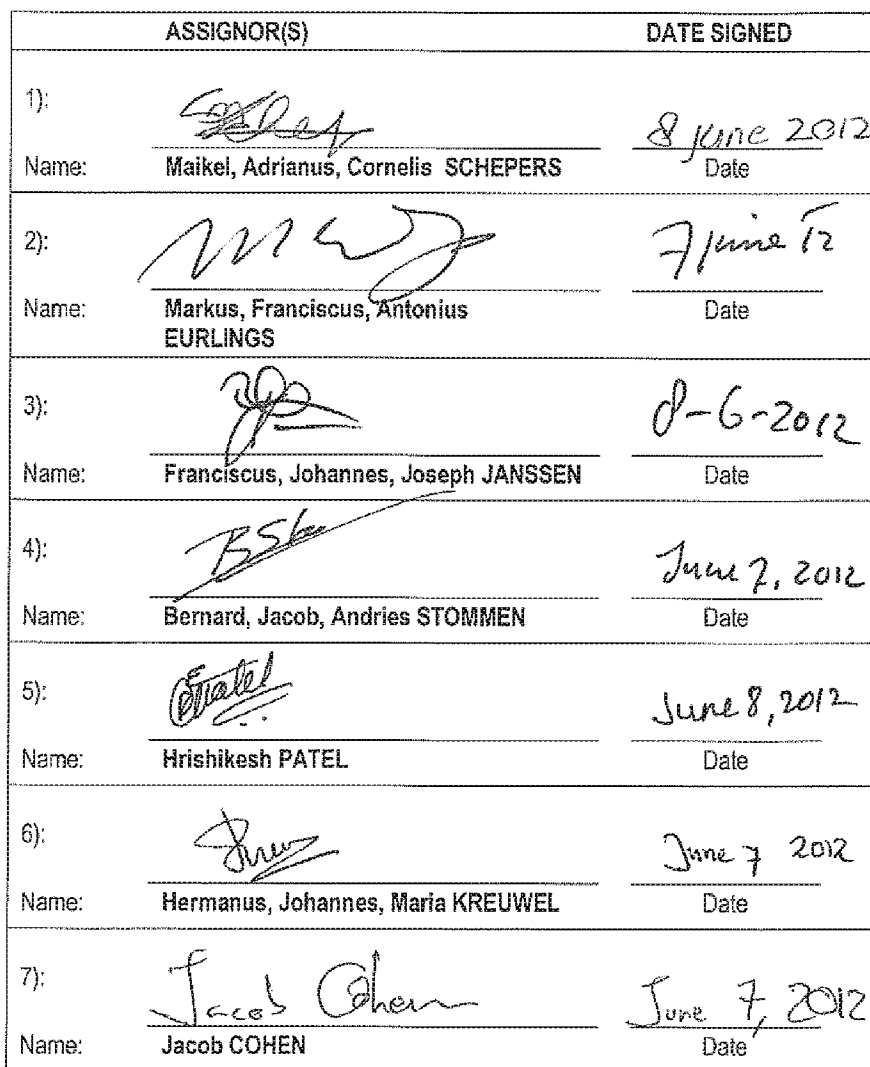 ASSIGNOR(S) DATE SIGNED
1): 8 june 2012
Name: Maikel, Adrianus, Cornelis SCHEPERS Date
2): 7 june 12
Name: Markus, Franciscus, Antonius Date
EURLINGS
3): 8-6-2012
Name: Franciscus, Johannes, Joseph JANSSEN Date
4): June 7, 2012
Name: Bernard, Jacob, Andries STOMMEN Date
5): June 8, 2012
Name: Hrishikesh PATEL Date
6): June 7 2012
Name: Hermanus, Johannes, Maria KREUWEL Date
7): Jacob Cohen June 7, 2012
Name: Jacob COHEN Date